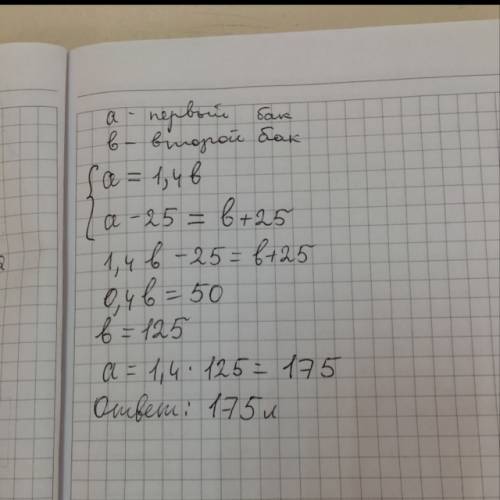 а - первый бак
в - второй бак
{ а = 1,4в
а - 25 = в + 25
1,4в - 25 = в + 25
0,4в = 50
в = 125
а = 1,4 · 125 = 175
Ответ: 175 л